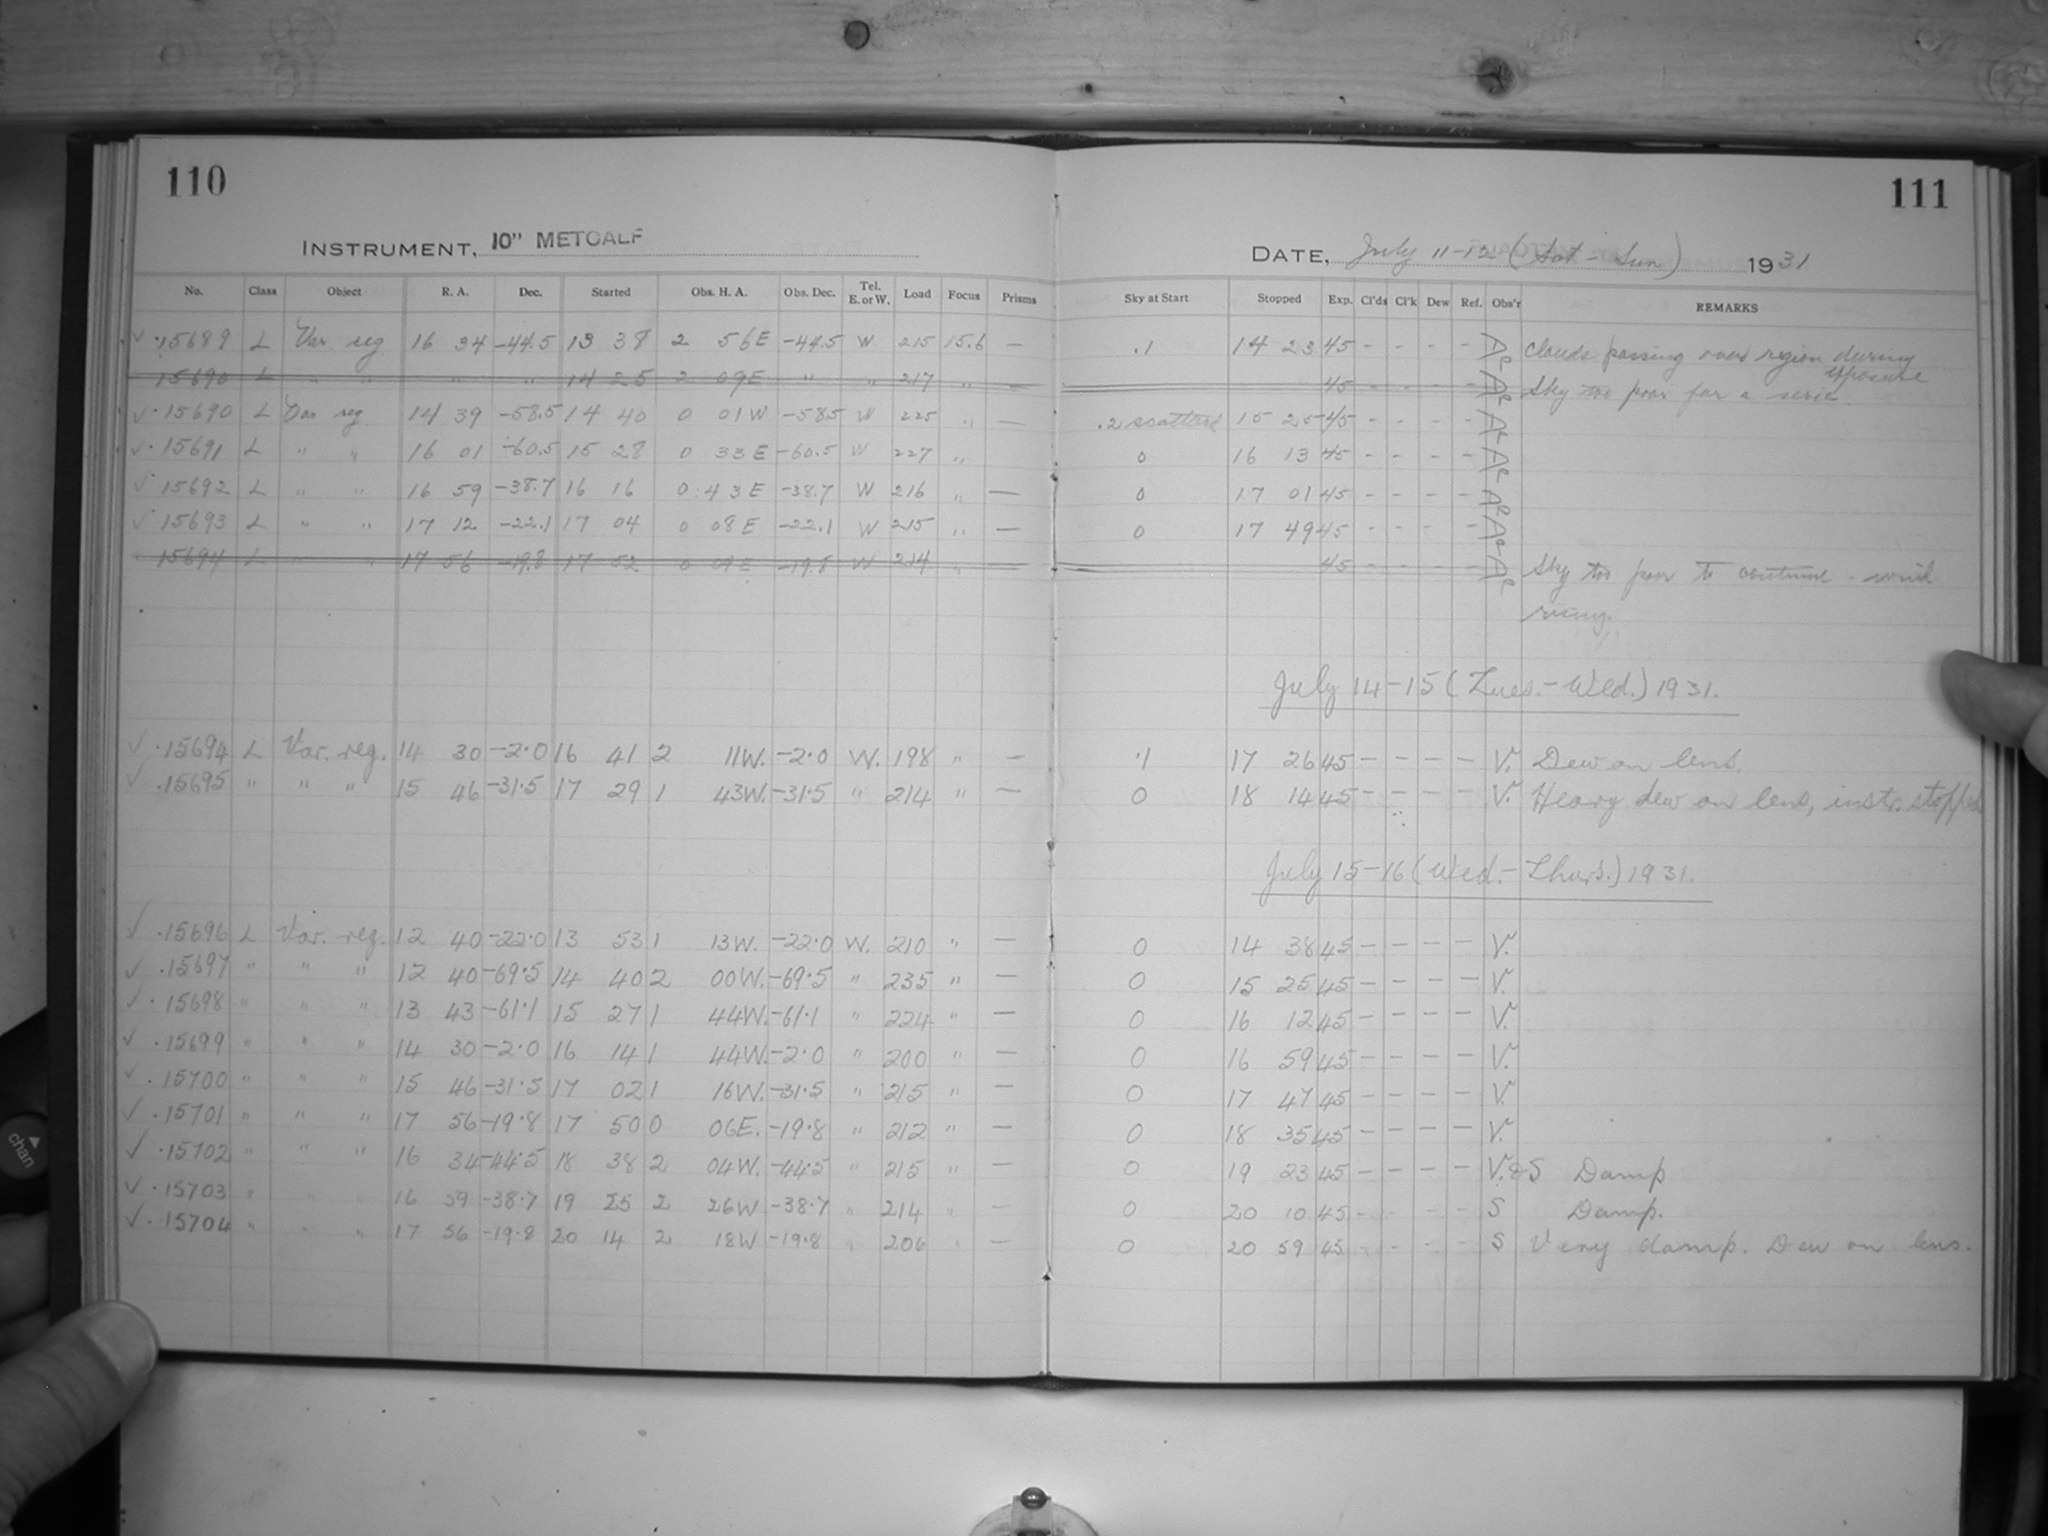 110
111
INSTRUMENT, 10" METCALF
DATE, July 11-12 (Sat.- Sun) 1931
No. Class Object R. A. Dec. Started Obs. H. A. Obs. Dec. Tel. E. or W. Load Focus Prisms Sky at Start Stopped Exp. Cl'ds Cl'k Dew Ref. Obs'r REMARKS
✓ ·15689 L Var. reg 16 34 -44.5 13 38 2 56E -44.5 W 215 15.6 — .1 14 23 45 - - - - AR Clouds passing over region during exposure
15690 L " " " " 14 25 2 09E " " 217 " — 45 - - - - AR Sky too poor for a series.
✓ ·15690 L Var reg 14 39 -58.5 14 40 0 01W -58.5 W 225 " — .2 scattered 15 25 45 - - - - AR
✓ ·15691 L " " 16 01 -60.5 15 28 0 33E -60.5 W 227 " 0 16 13 45 - - - - AR
✓ 15692 L " " 16 59 -38.7 16 16 0 43E -38.7 W 216 " — 0 17 01 45 - - - - AR
✓ 15693 L " " 17 12 -22.1 17 04 0 08E -22.1 W 215 " — 0 17 49 45 - - - - AR
15694 L " " 17 56 -19.8 17 52 0 04E -19.8 W 214 " — 45 - - - - AR Sky too poor to continue - wind
rising.
July 14-15 (Tues.-Wed.) 1931.
✓ ·15694 L Var. reg. 14 30 -2.0 16 41 2 11W. -2.0 W. 198 " — .1 17 26 45 - - - - V. Dew on lens.
✓ ·15695 " " " 15 46 -31.5 17 29 1 43W. -31.5 " 214 " — 0 18 14 45 - - - - V. Heavy dew on lens, instr. stopped
July 15-16 (Wed.-Thurs.) 1931.
✓ ·15696 L Var. reg. 12 40 -22.0 13 53 1 13W. -22.0 W. 210 " — 0 14 38 45 - - - - V.
✓ ·15697 " " " 12 40 -69.5 14 40 2 00W. -69.5 " 235 " — 0 15 25 45 - - - - V.
✓ ·15698 " " " 13 43 -61.1 15 27 1 44W. -61.1 " 224 " — 0 16 12 45 - - - - V.
✓ ·15699 " " " 14 30 -2.0 16 14 1 44W. -2.0 " 200 " — 0 16 59 45 - - - - V.
✓ ·15700 " " " 15 46 -31.5 17 02 1 16W. -31.5 " 215 " — 0 17 47 45 - - - - V.
✓ ·15701 " " " 17 56 -19.8 17 50 0 06E. -19.8 " 212 " — 0 18 35 45 - - - - V.
✓ ·15702 " " " 16 34 -44.5 18 38 2 04W. -44.5 " 215 " — 0 19 23 45 - - - - V.&S Damp
✓ ·15703 " " " 16 59 -38.7 19 25 2 26W -38.7 " 214 " — 0 20 10 45 - - - - S Damp.
✓ ·15704 " " " 17 56 -19.8 20 14 2 18W -19.8 " 206 " — 0 20 59 45 - - - - S Very damp. Dew on lens.
chan